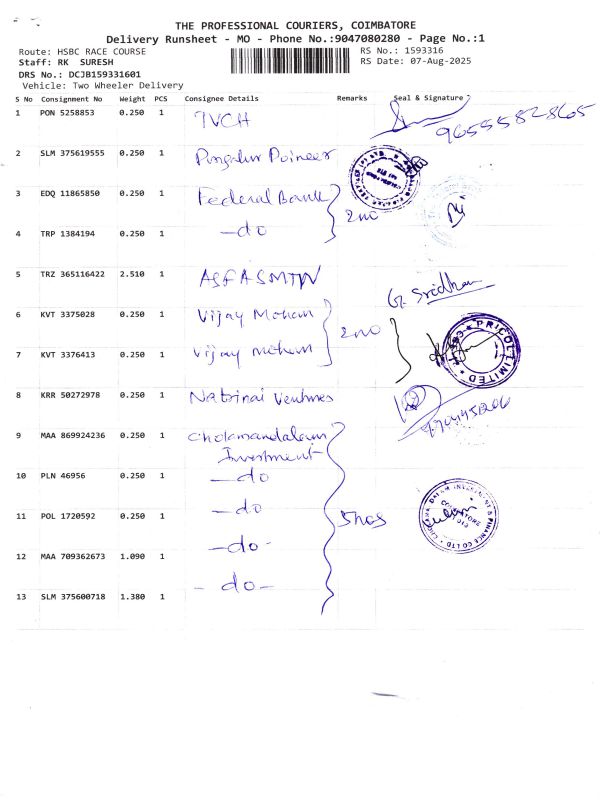 THE PROFESSIONAL COURIERS, COIMBATORE
Delivery Runsheet - MO - Phone No.:9047080280 - Page No.:1
Route: HSBC RACE COURSE
RS No.: 1593316
Staff: RK SURESH
RS Date: 07-Aug-2025
DRS No.: DCJB159331601
Vehicle: Two Wheeler Delivery
S No Consignment No Weight PCS Consignee Details Remarks Seal & Signature
1 PON 5258853 0.250 1 TVCH
96555828605
2 SLM 375619555 0.250 1
3 EDQ 11865850 0.250 1 Federal Bank
2 no
4 TRP 1384194 0.250 1 -do
5 TRZ 365116422 2.510 1
G. Sridhar
6 KVT 3375028 0.250 1 Vijay Mohan
2 no
PRICOL LIMITED
7 KVT 3376413 0.250 1 Vijay Mohan
8 KRR 50272978 0.250 1 Natrinai Ventures
9 MAA 869924236 0.250 1 Cholamandalam
Investment
10 PLN 46956 0.250 1 -do
-do
11 POL 1720592 0.250 1
5 nos
-do-
12 MAA 709362673 1.090 1
- do-
13 SLM 375600718 1.380 1